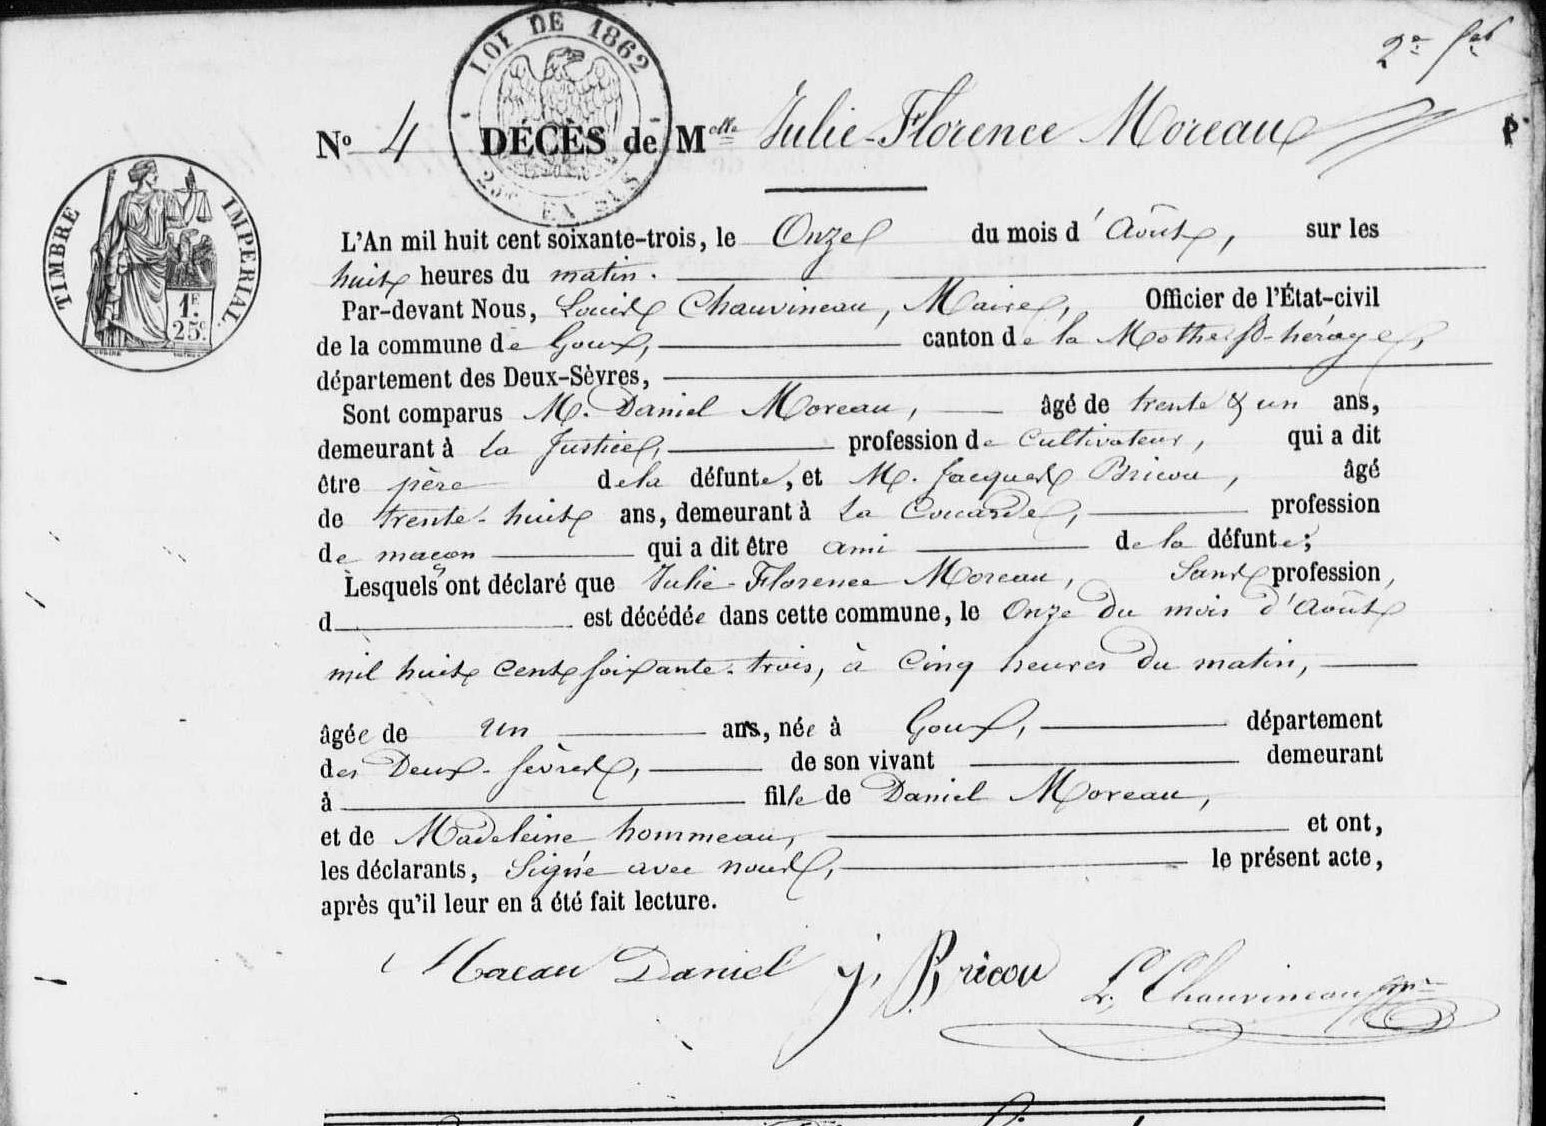 LOI DE 1862
25c EN SUS
TIMBRE IMPERIAL.
1F.
25c
No 4 DÉCÈS de Melle Julie-Florence Moreau
L'An mil huit cent soixante-trois, le Onze du mois d'Août, sur les
huit heures du matin.
Par-devant Nous, Louis Chauvineau, Maire, Officier de l'État-civil
de la commune de Goux, canton de la Mothe St-héraye,
département des Deux-Sèvres,
Sont comparus M. Daniel Moreau, âgé de trente & un ans,
demeurant à La Justice, profession de Cultivateur, qui a dit
être père de la défunte, et M. Jacques Bricou, âgé
de trente-huit ans, demeurant à La Couarde, profession
de maçon qui a dit être ami de la défunte;
Lesquels ont déclaré que Julie-Florence Moreau, Sans profession,
d est décédée dans cette commune, le Onze du mois d'Août
mil huit cent soixante-trois, à Cinq heures du matin,
âgée de un ans, née à Goux, département
des Deux-Sèvres, de son vivant demeurant
à fille de Daniel Moreau,
et de Madeleine hommeau, et ont,
les déclarants, Signé avec nous, le présent acte,
après qu'il leur en a été fait lecture.
Moreau Daniel J. Bricou L. Chauvineau